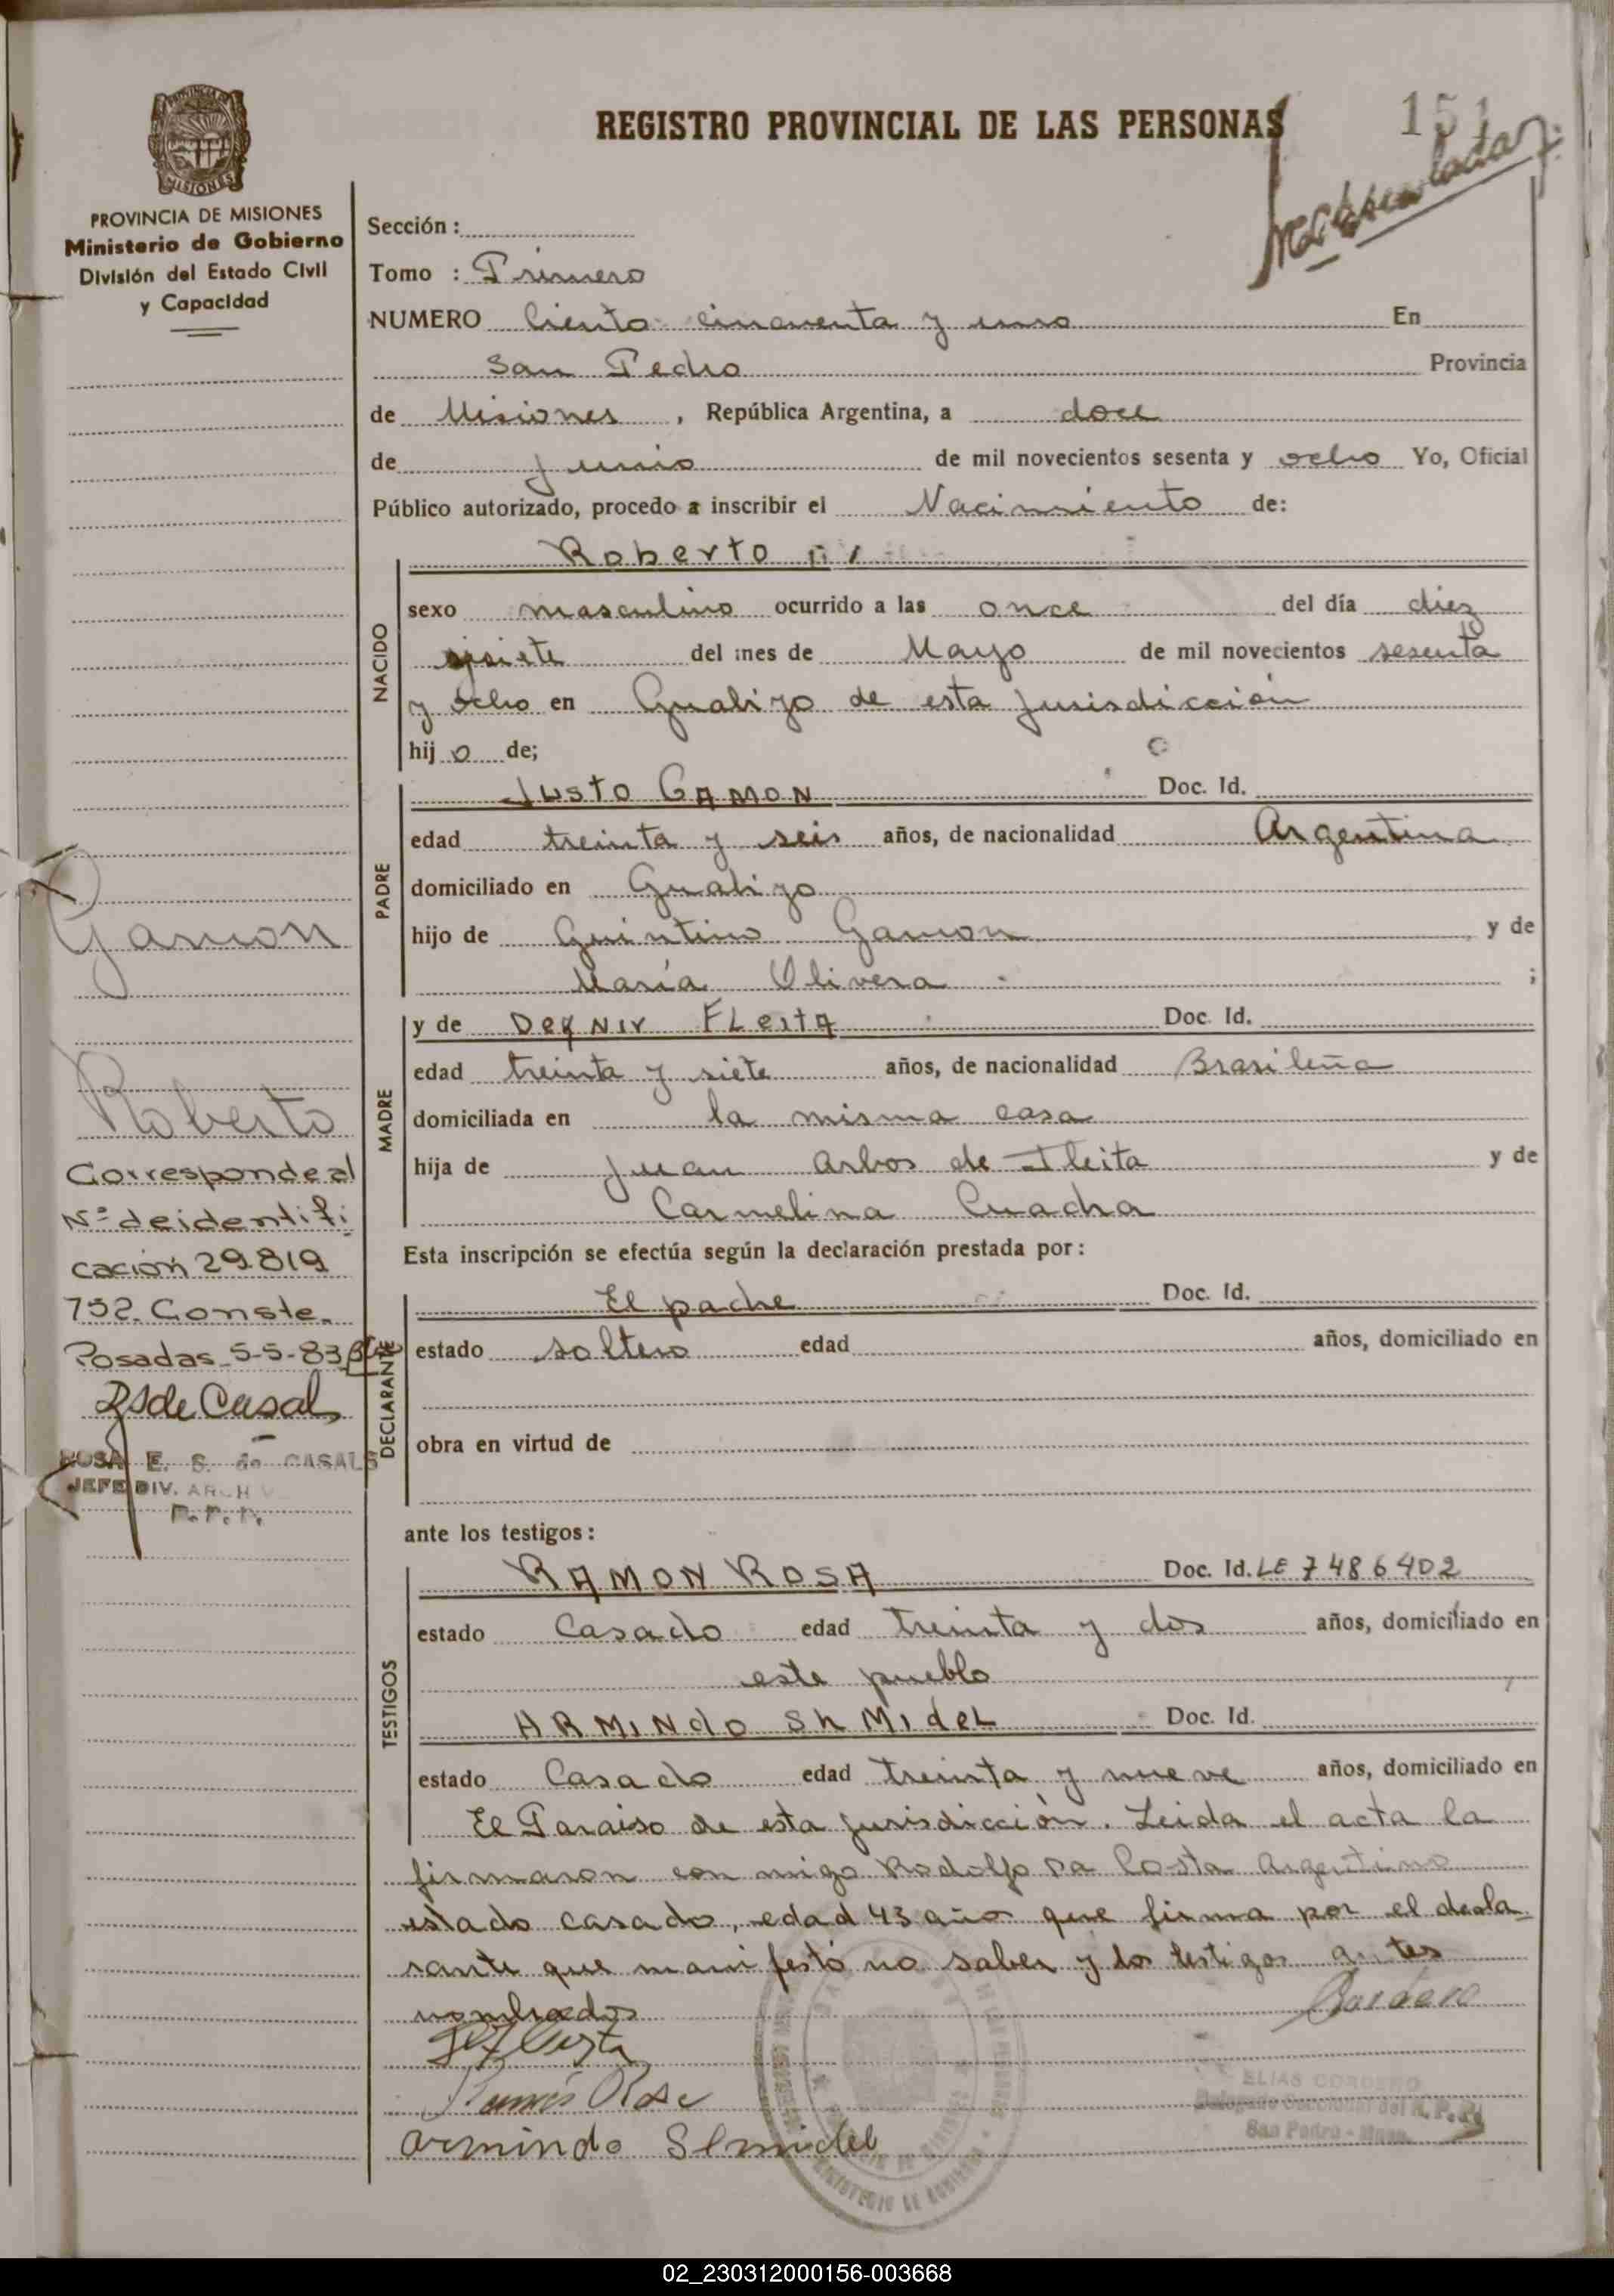 REGISTRO PROVINCIAL DE LAS PERSONAS
151
MISIONES
PROVINCIA DE MISIONES
Ministerio de Gobierno
División del Estado Civil
y Capacidad
Sección :
Tomo : Primero
NUMERO Ciento cincuenta y uno En
San Pedro Provincia
de Misiones , República Argentina, a doce
de junio de mil novecientos sesenta y ocho Yo, Oficial
Público autorizado, procedo a inscribir el Nacimiento de:
Roberto
NACIDO
sexo masculino ocurrido a las once del día diez
y siete del mes de Mayo de mil novecientos sesenta
y ocho en Gualizo de esta jurisdicción
hij o de;
Justo GAMON Doc. Id.
PADRE
edad treinta y seis años, de nacionalidad Argentina
domiciliado en Gualizo
hijo de Quintino Gamon y de
María Olivera ;
y de Deqnir FLeitA Doc. Id.
MADRE
edad treinta y siete años, de nacionalidad Brasileña
domiciliada en la misma casa
hija de Juan Arbos de Fleita y de
Carmelina Cuadra
Esta inscripción se efectúa según la declaración prestada por:
El padre Doc. Id.
DECLARANTE
estado soltero edad años, domiciliado en
obra en virtud de
ante los testigos:
RAMON ROSA Doc. Id. LE 7486402
TESTIGOS
estado Casado edad treinta y dos años, domiciliado en
este pueblo
ARMINdo ShMIdeL Doc. Id.
estado Casado edad treinta y nueve años, domiciliado en
El Paraiso de esta jurisdicción. Leida el acta la
firmaron con migo Rodolfo Da Costa Argentino
estado casado, edad 43 año que firma por el decla
rante que manifestó no saber y los testigos antes
nombrados
Ramón Rosa
armindo Shmidel
ELIAS CORDERO
San Pedro - Mnes.
MINISTERIO DE GOBIERNO
Gamon
Roberto
Corresponde al
Nº de identifi
cación 29.819
752. Conste.
Posadas 5-5-83
RSde Casals
ROSA E. S. de CASALS
JEFE DIV. ARCHIV
R.P.P.
02_230312000156-003668